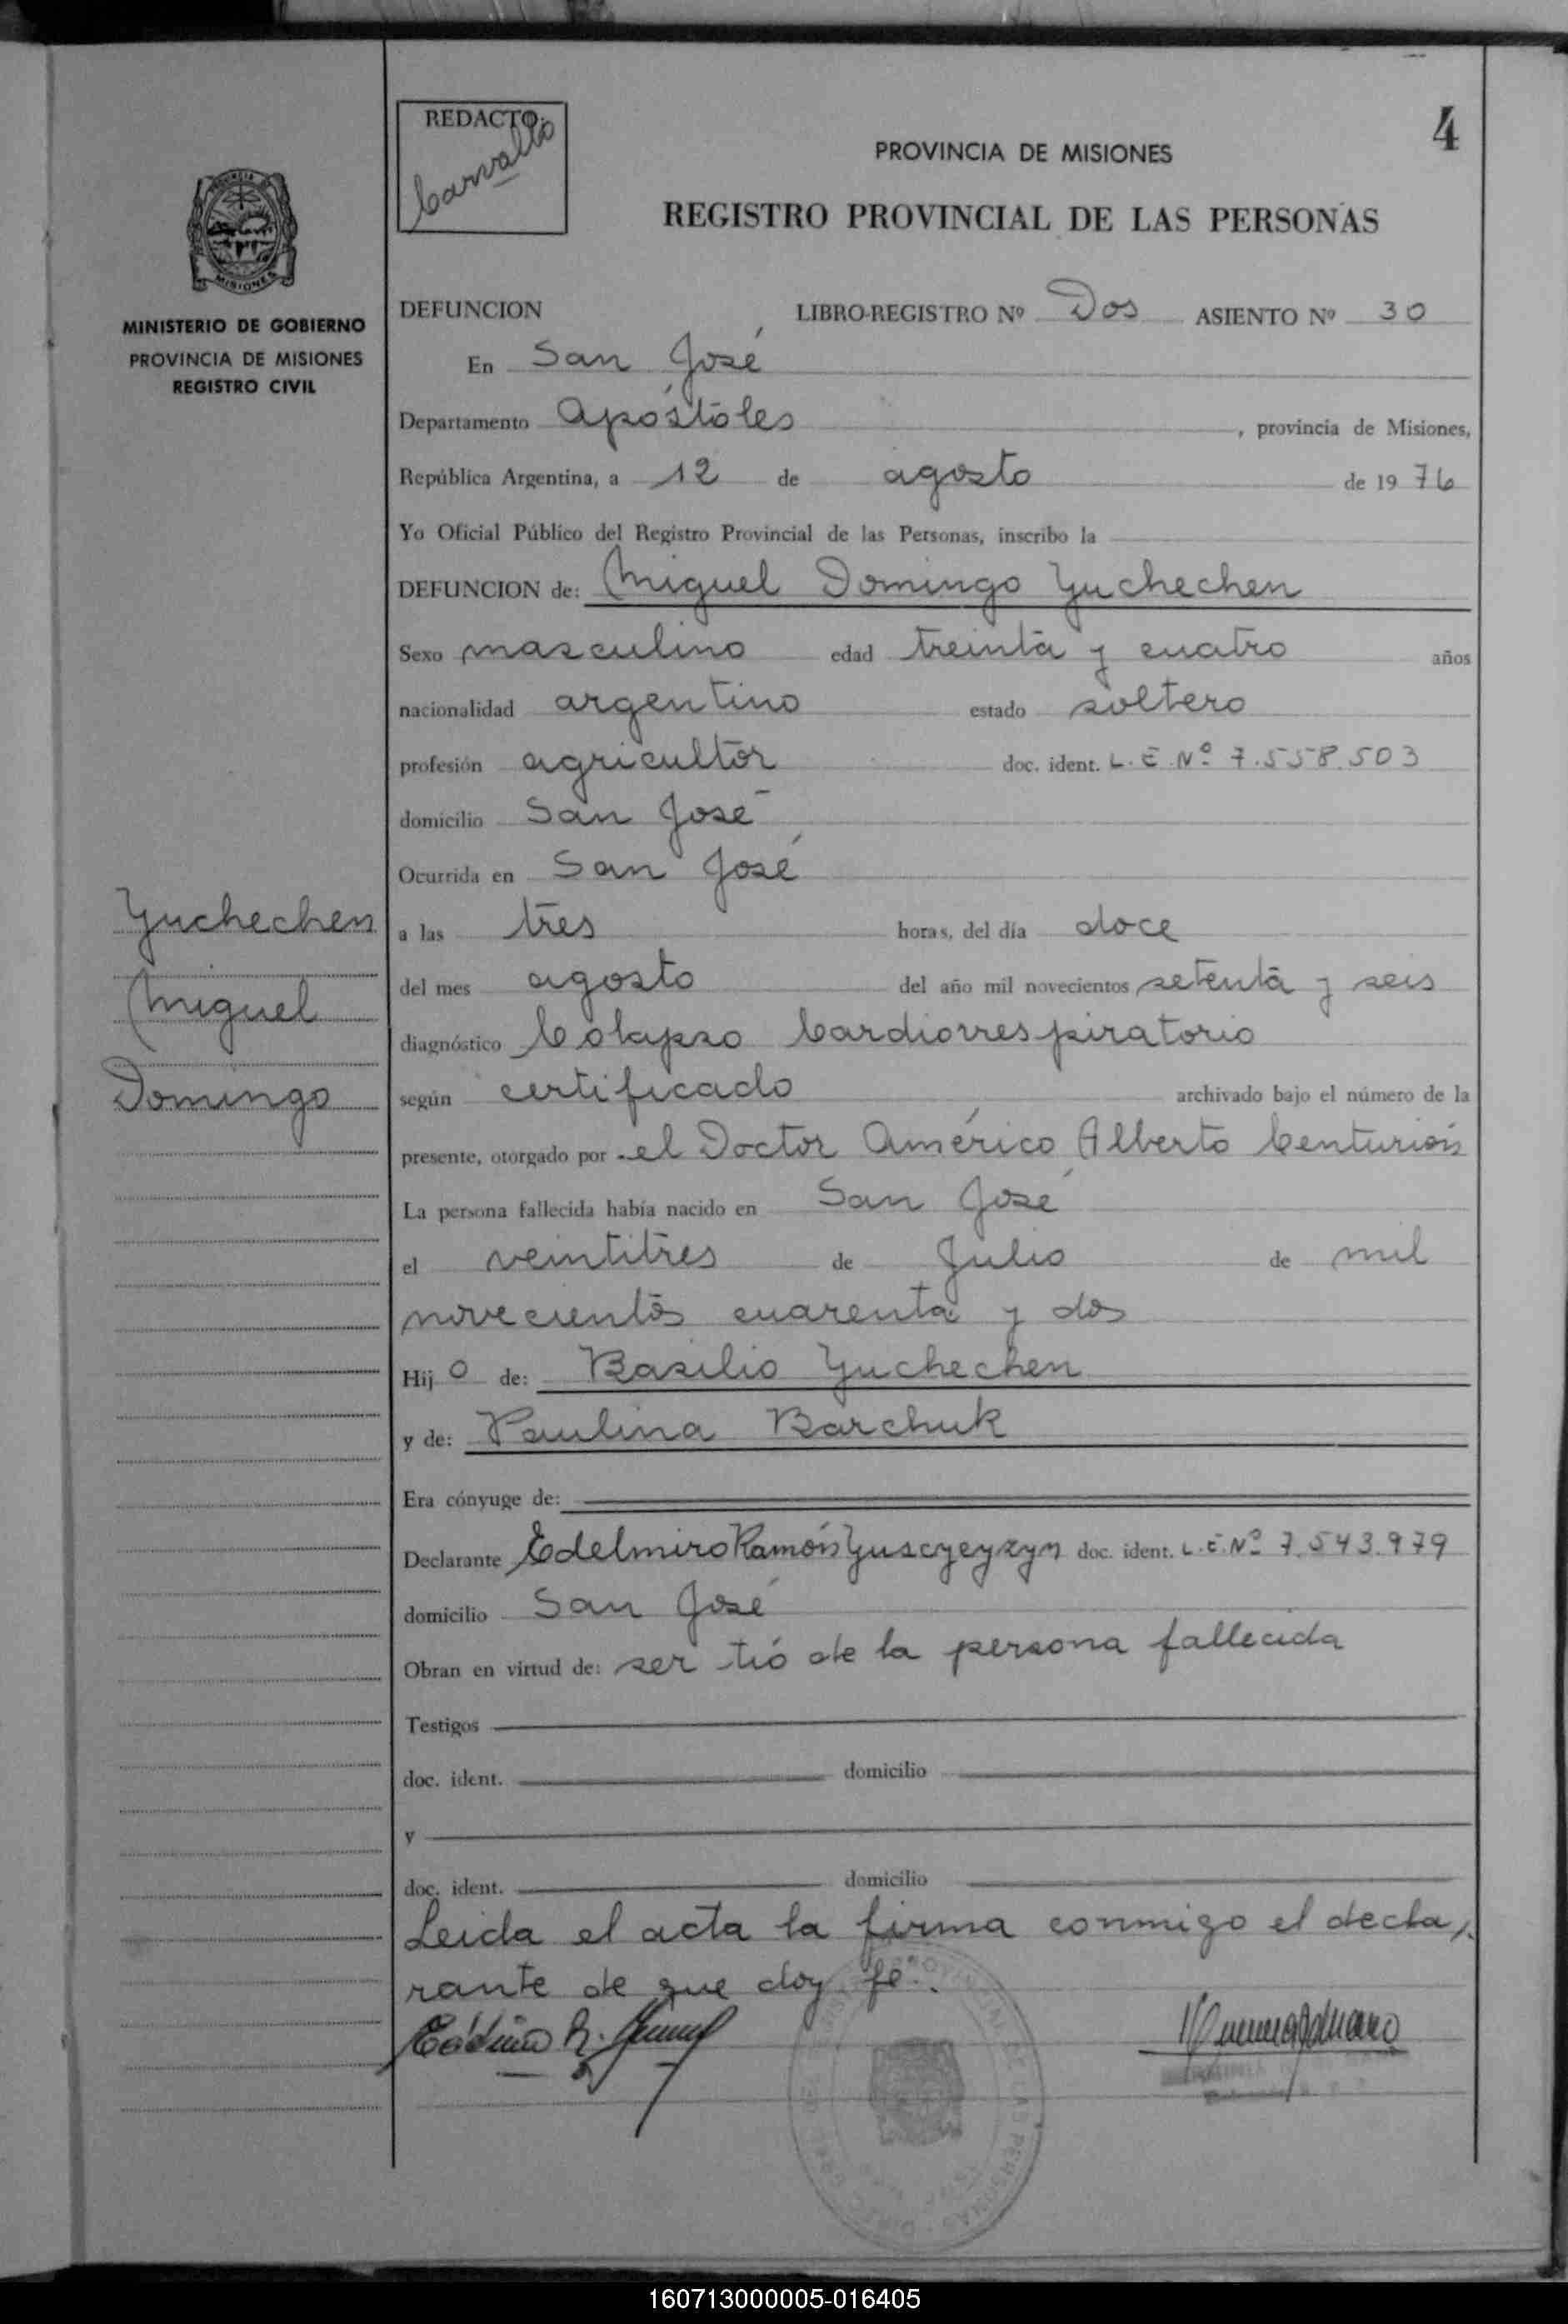 REDACTO:
Carvallo
4
PROVINCIA DE MISIONES
REGISTRO PROVINCIAL DE LAS PERSONAS
PROVINCIA
MISIONES
MINISTERIO DE GOBIERNO
PROVINCIA DE MISIONES
REGISTRO CIVIL
DEFUNCION LIBRO-REGISTRO Nº Dos ASIENTO Nº 30
En San José
Departamento Apóstoles, provincia de Misiones,
República Argentina, a 12 de agosto de 1976
Yo Oficial Público del Registro Provincial de las Personas, inscribo la
DEFUNCION de: Miguel Domingo Yuchechen
Sexo masculino edad treinta y cuatro años
nacionalidad argentino estado soltero
profesión agricultor doc. ident. L.E.Nº 7.558.503
domicilio San José
Ocurrida en San José
Yuchechen
Miguel
Domingo
a las tres horas, del día doce
del mes agosto del año mil novecientos setenta y seis
diagnóstico Colapso Cardiorrespiratorio
según certificado archivado bajo el número de la
presente, otorgado por el Doctor Américo Alberto Centurión
La persona fallecida había nacido en San José
el veintitres de Julio de mil
novecientos cuarenta y dos
Hijo de: Basilio Yuchechen
y de: Paulina Barchuk
Era cónyuge de:
Declarante Edelmiro Ramón Yuscyeyzyn doc. ident. L.E.Nº 7.543.979
domicilio San José
Obran en virtud de: ser tió de la persona fallecida
Testigos
doc. ident. domicilio
y
doc. ident. domicilio
Leida el acta la firma conmigo el decla,
rante de que doy fé..
160713000005-016405